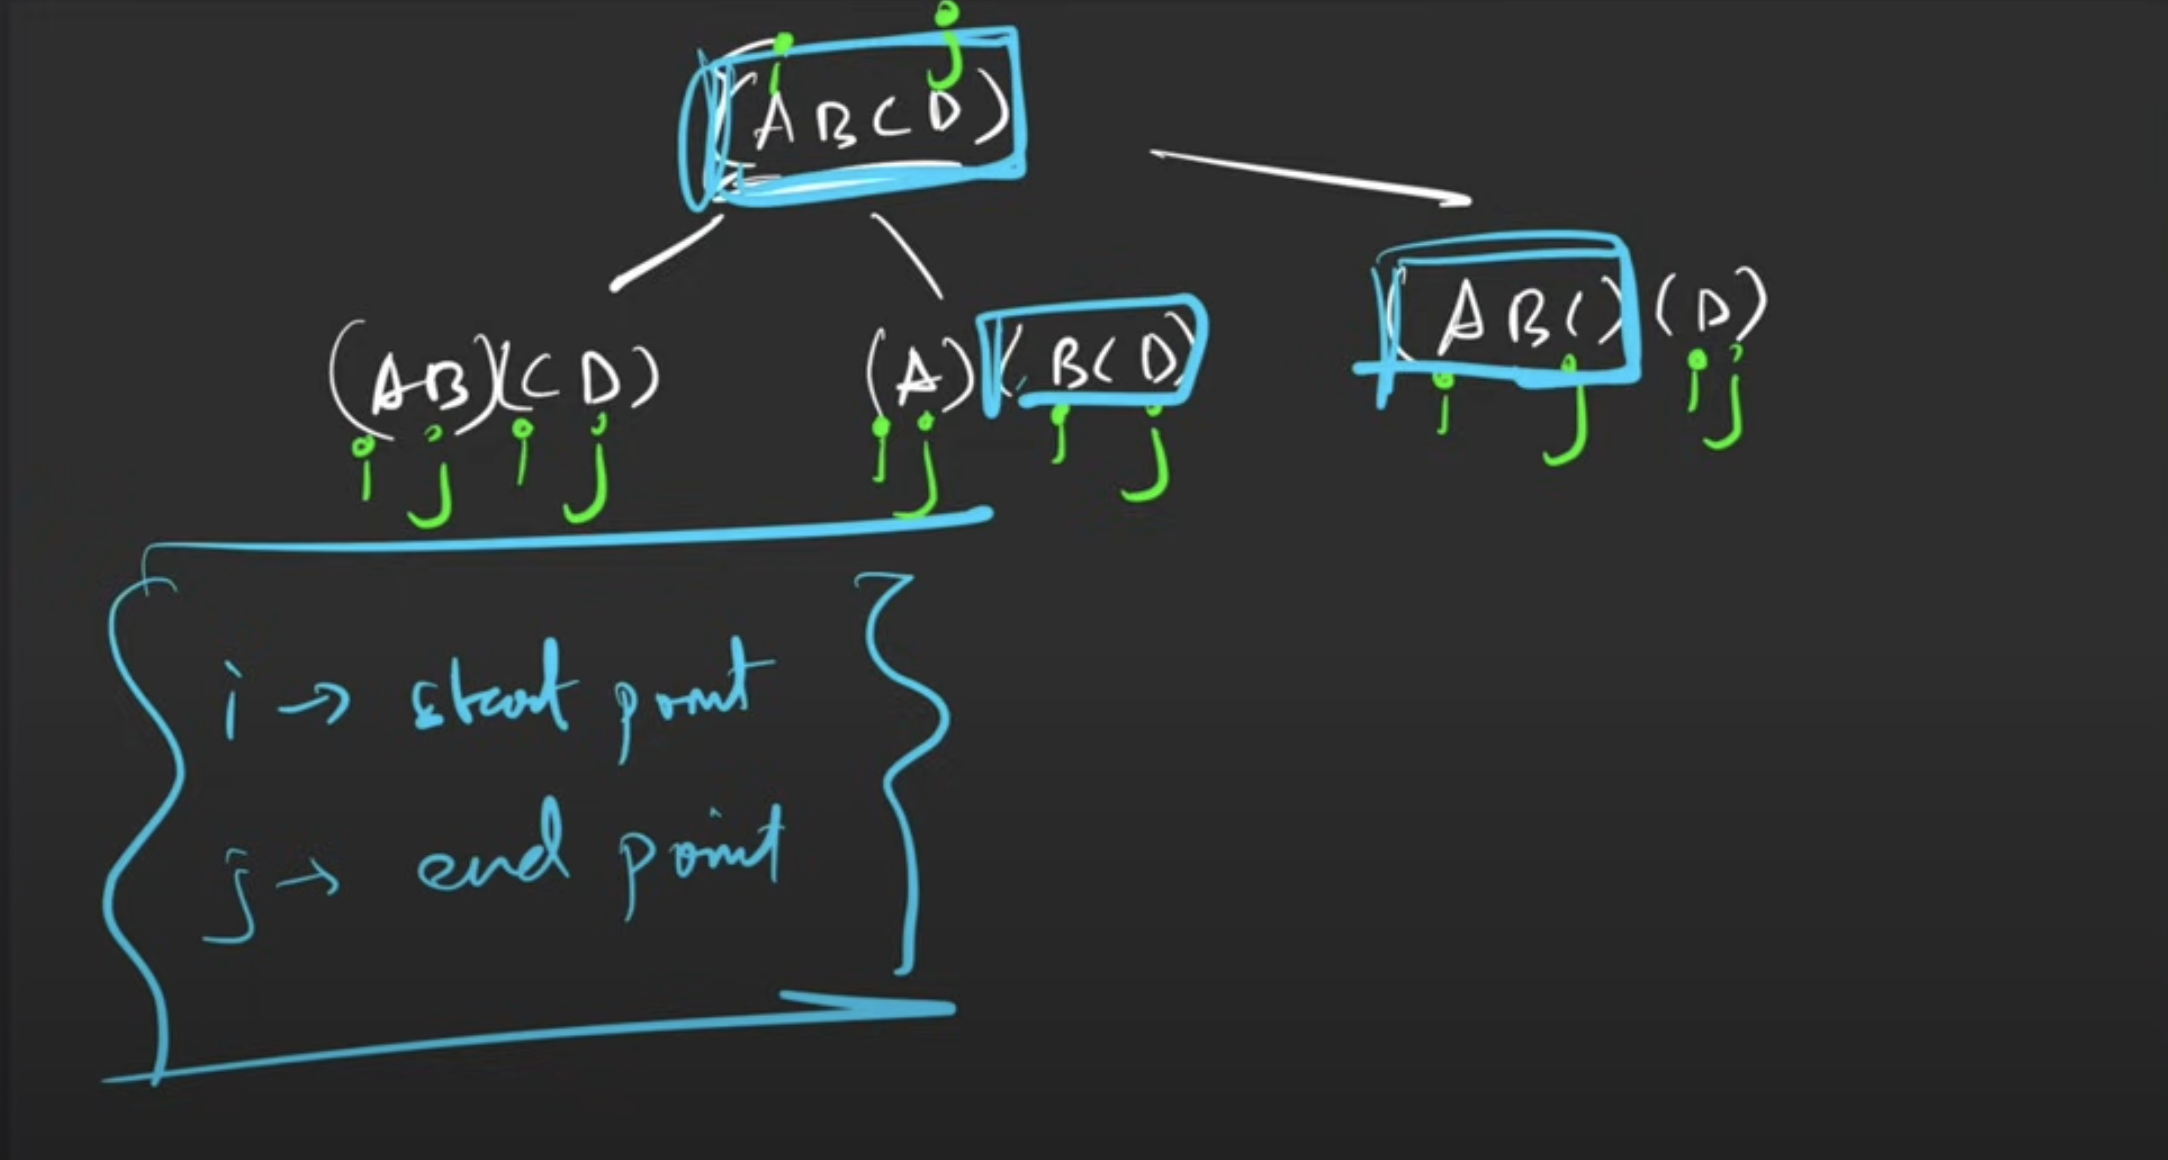 i j
(ABCD)
(AB)(CD) (A)(BCD) (ABC)(D)
i j i j i j i j i j i j
i → start point
j → end point